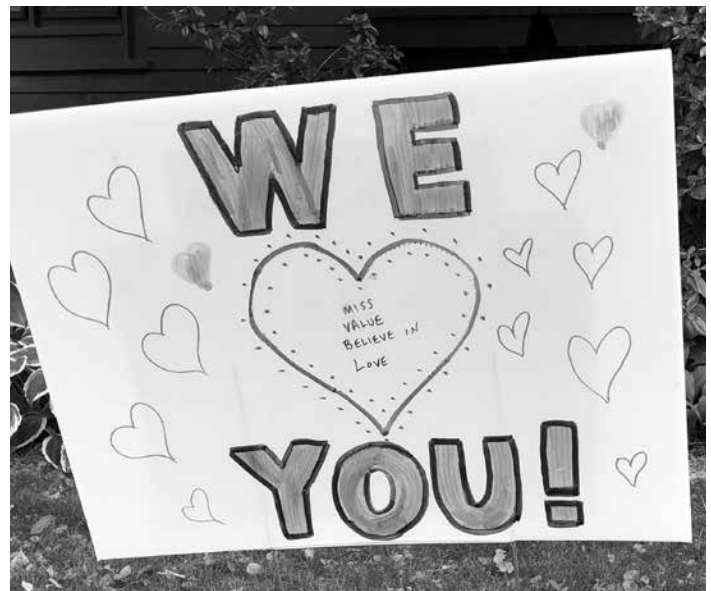 WE
MISS
VALUE
BELIEVE IN
LOVE
YOU!